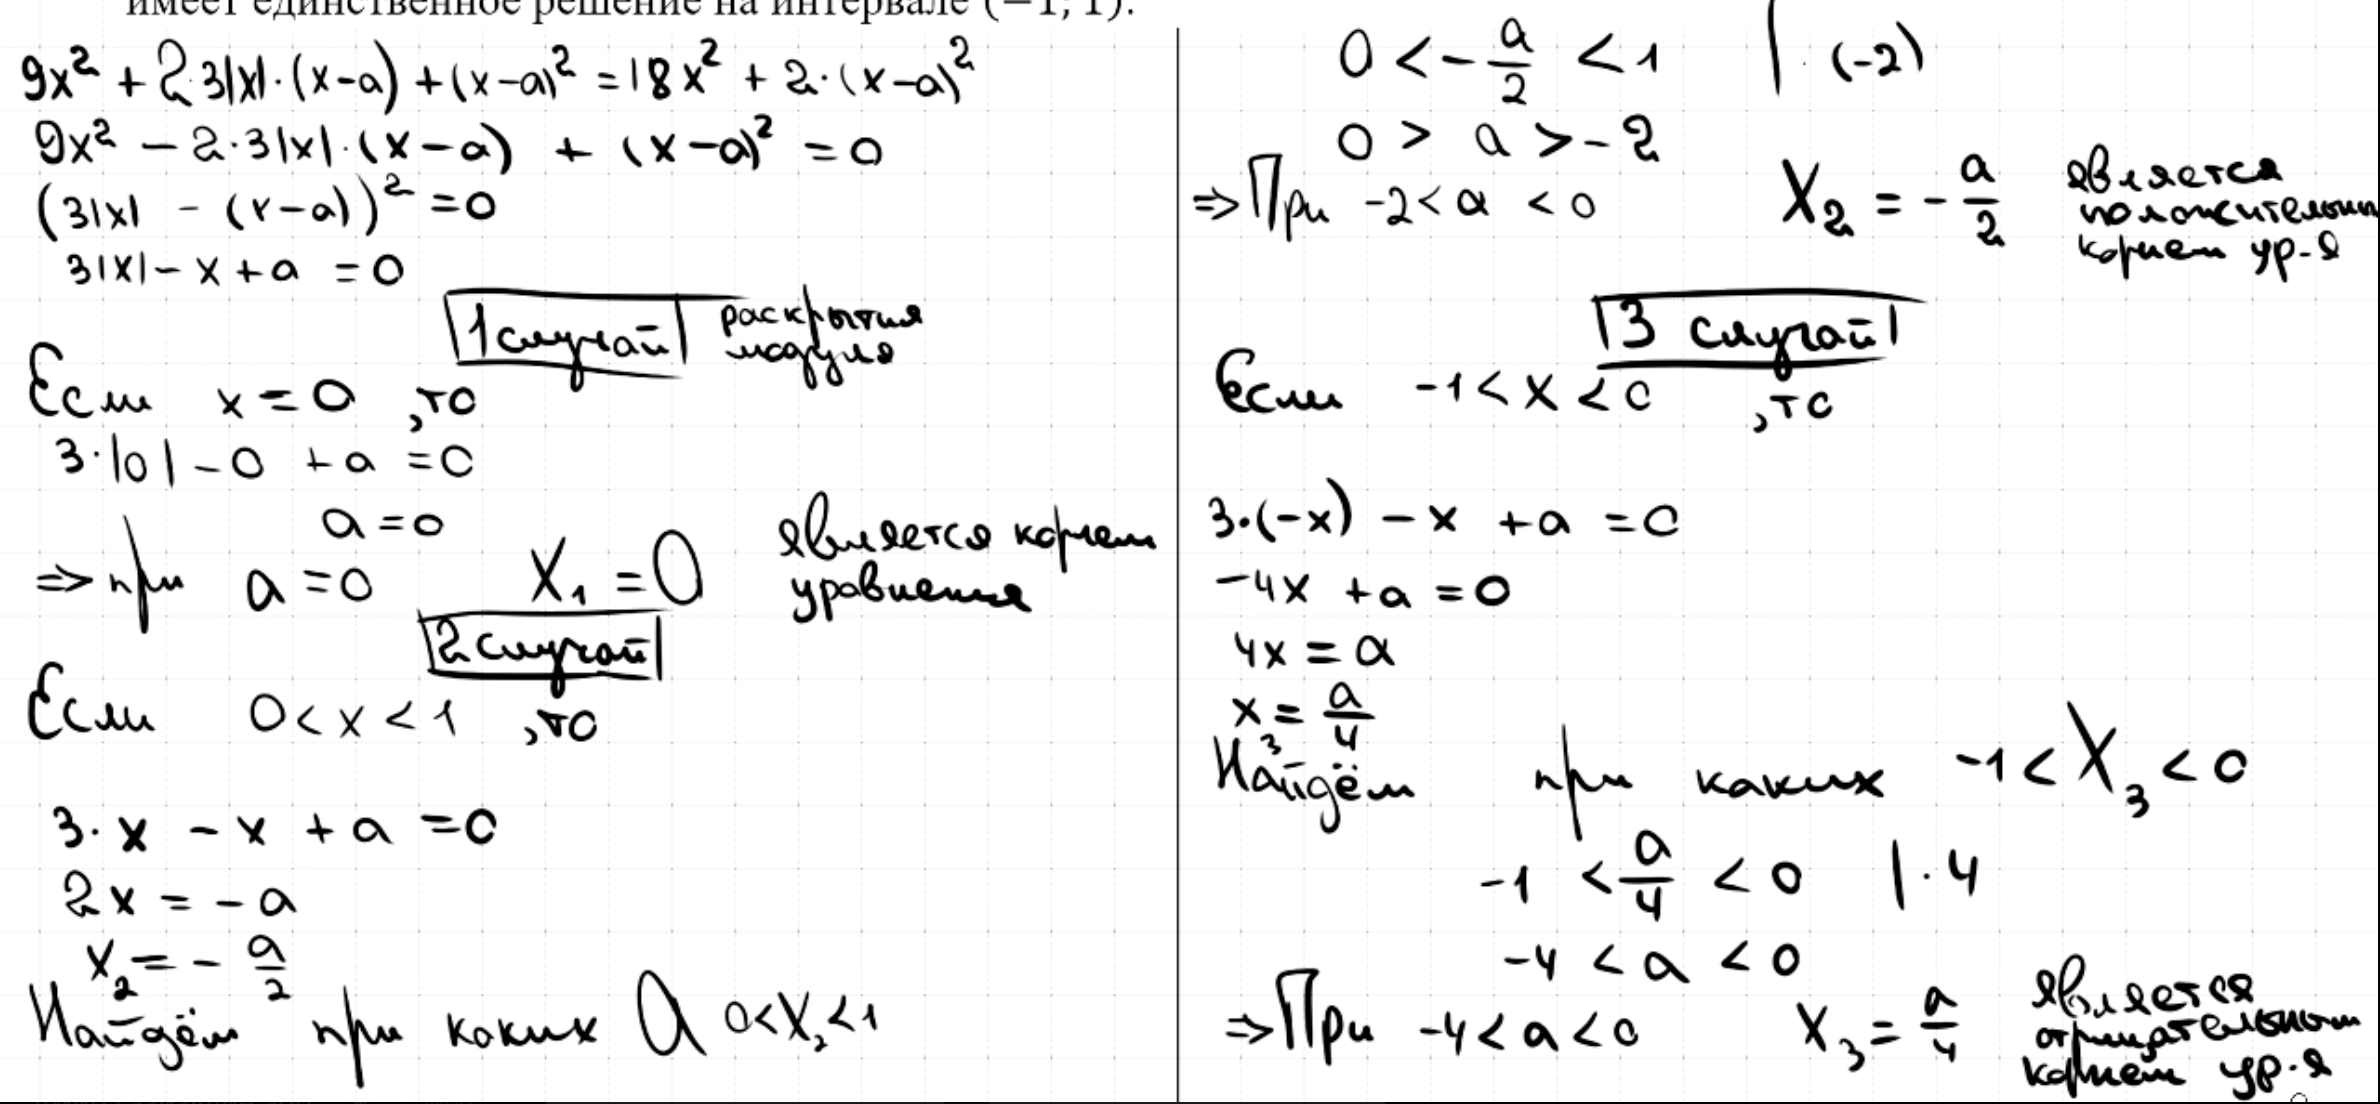 имеет единственное решение на интервале (−1; 1).
9x² + 2·3|x|·(x-a) + (x-a)² = 18x² + 2·(x-a)²
9x² - 2·3|x|·(x-a) + (x-a)² = 0
(3|x| - (x-a))² = 0
3|x| - x + a = 0
1 случай раскрытия
модуля
Если x = 0, то
3·|0| - 0 + a = 0
a = 0
=> при a = 0 X₁ = 0 является корнем
уравнения
2 случай
Если 0 < x < 1, то
3·x - x + a = 0
2x = -a
x₂ = - a/2
Найдём при каких a 0 < X₂ < 1
0 < - a/2 < 1 | ·(-2)
0 > a > -2
=> При -2 < a < 0 X₂ = - a/2 является
положительным
корнем ур-я
3 случай
Если -1 < x < 0, то
3·(-x) - x + a = 0
-4x + a = 0
4x = a
x₃ = a/4
Найдём при каких -1 < X₃ < 0
-1 < a/4 < 0 | ·4
-4 < a < 0
=> При -4 < a < 0 X₃ = a/4 является
отрицательным
корнем ур-я